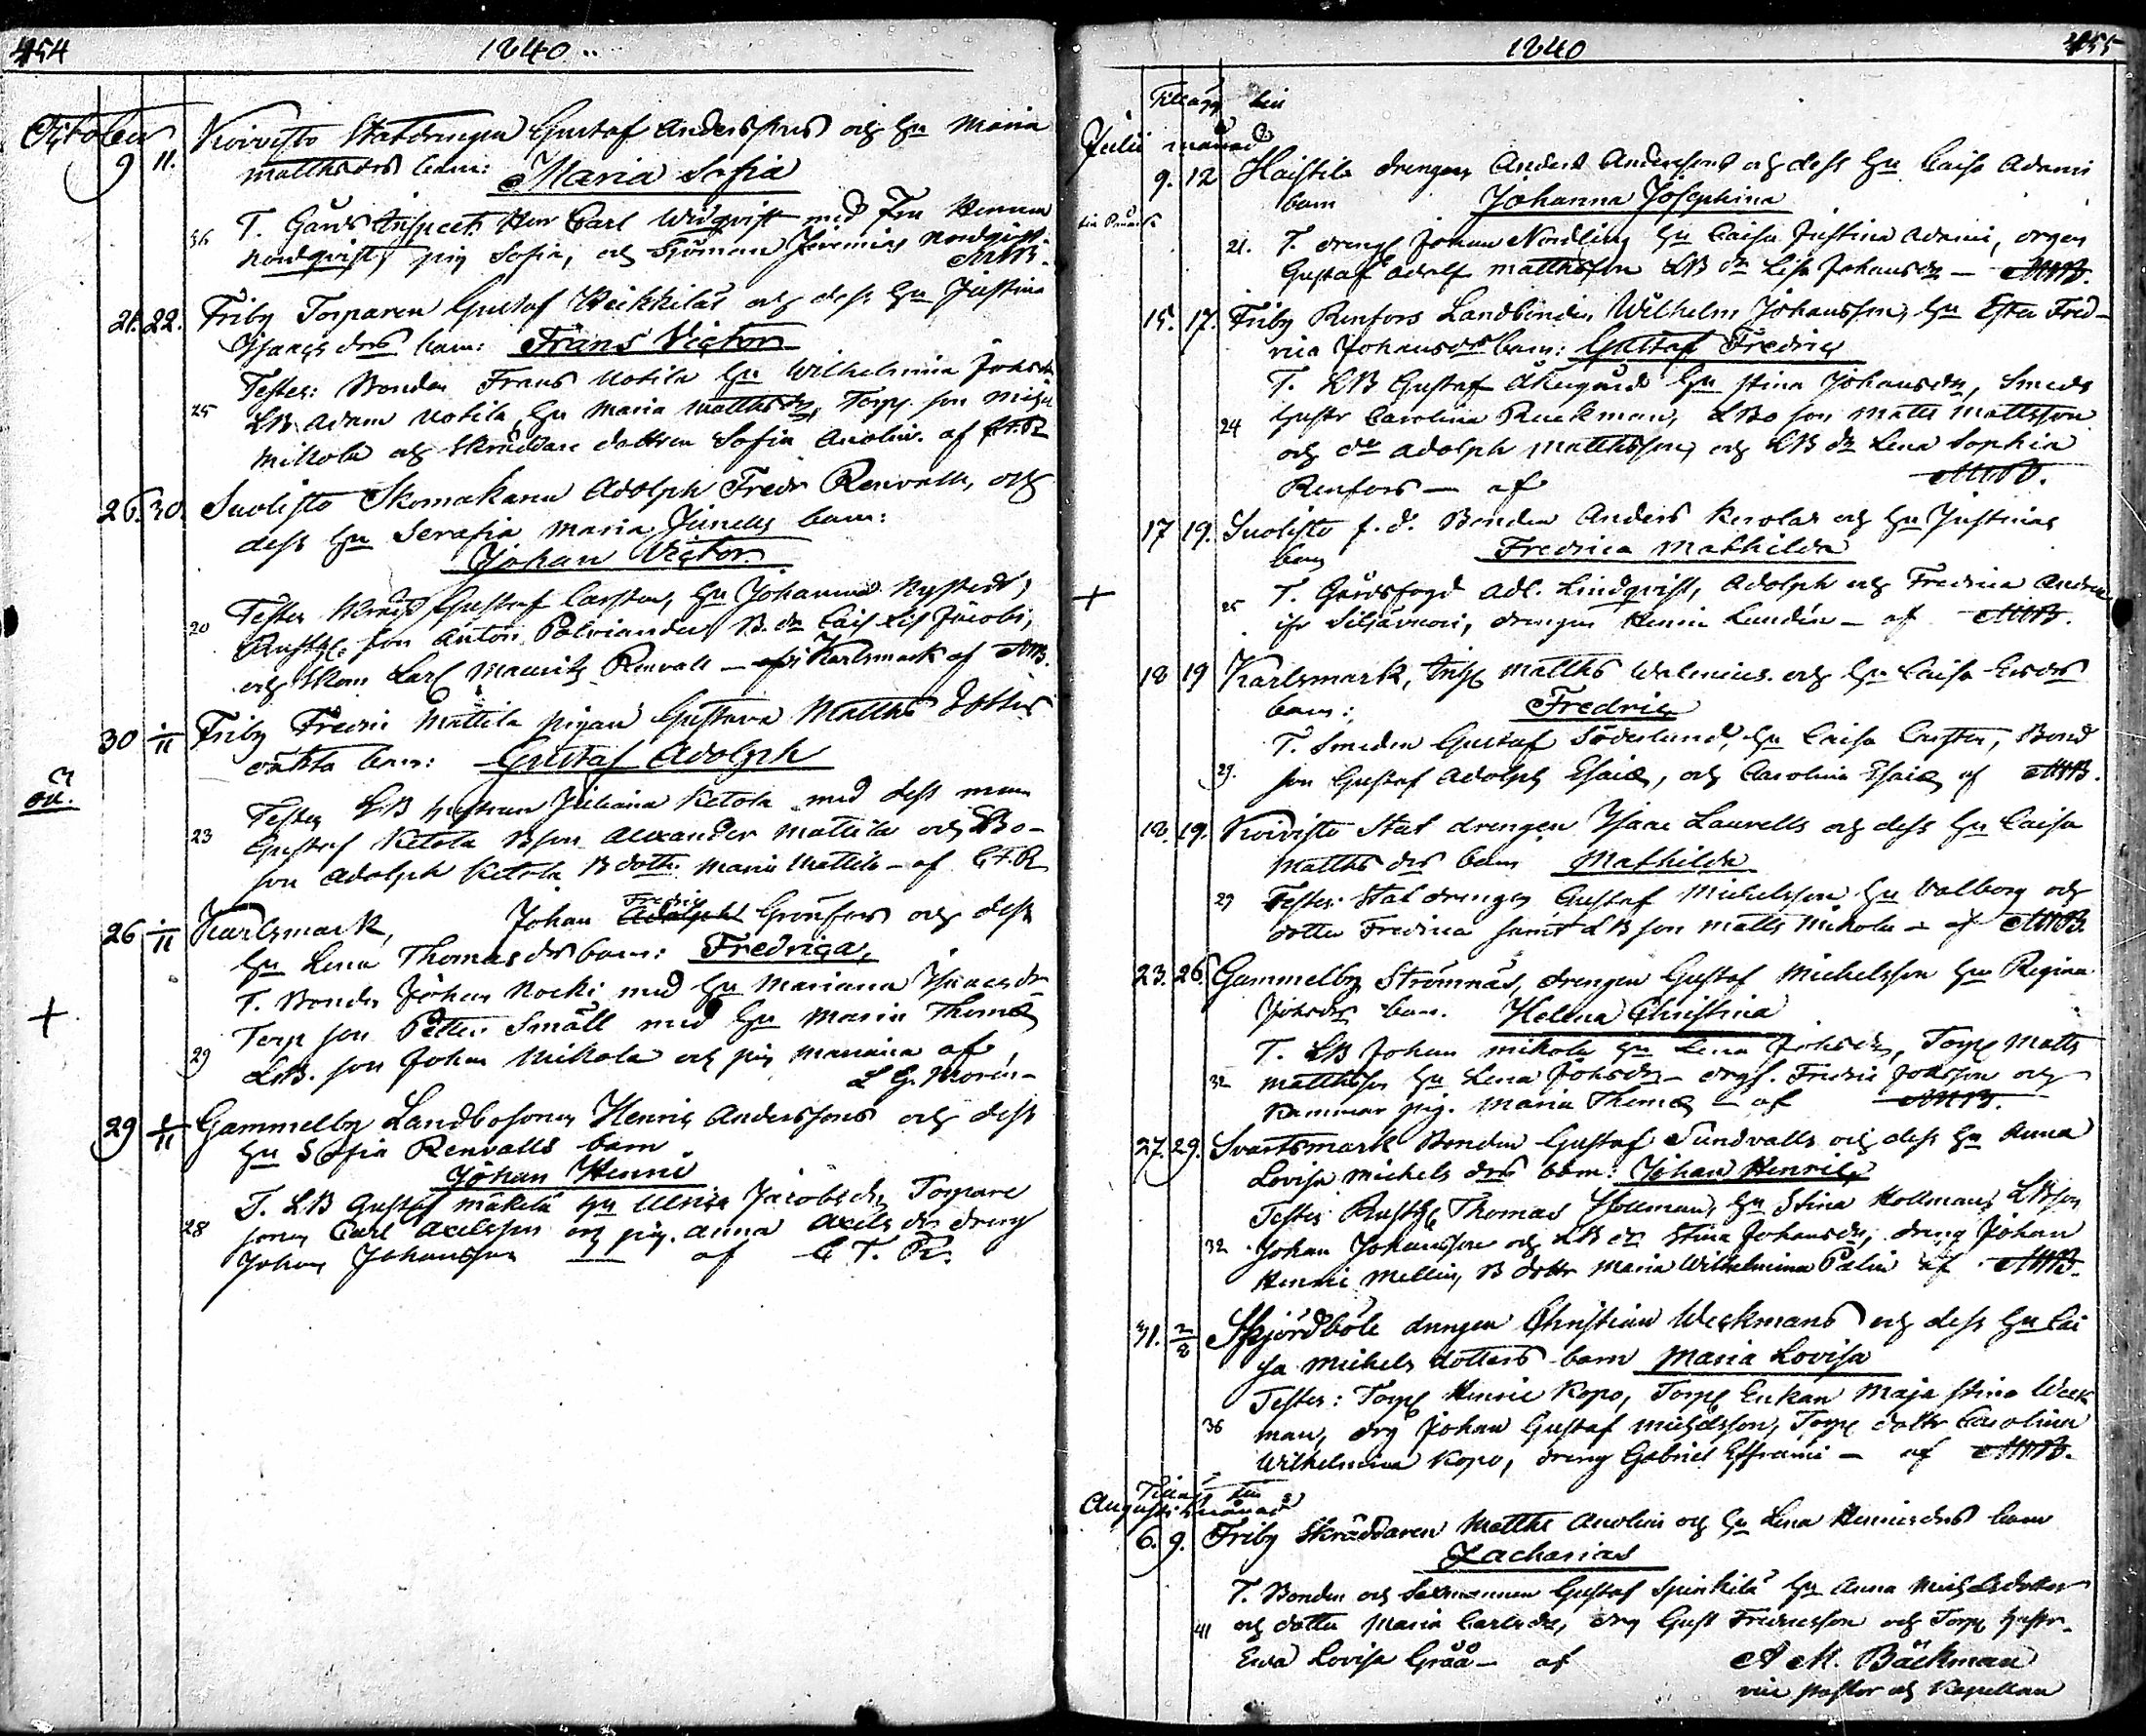 454 1840.
October
9 11. Koivisto Statdrengen Gustaf Anderssons och Hu Maria
Matthsdrs barn: Maria Sofia
36 T. Gårds Inspect. Herr Carl Widqvist med Fru
Nordqvist, pig Sofia, och Sjöman Jeremias Nordqvist
AMB.
21. 22. Friby Torparen Gustaf Heikkiläs och dess Hu Justina
Isaacs drs barn: Frans Victor
Testes: Bonden Frans Uotila Hu Wilhelmina Johsdr
25 LB. Adam Uotila, Hu Maria Matthsdr, Torp. son
Mikola och Skräddare dottren Sofia Anolin. af
26. 30. Suolisto Skomakaren Adolph Fredr Renvalls, och
dess Hu Serafia Maria Junells barn:
Johan Victor
20 Testes Gustaf Carsten, Hu Johanna Nystedt,
Rusth. son Anton Polviander, B. dr Jacobi,
och Skom Carl Mauritz Renvall — Karlsmark af AMB.
30 1/11 Friby Fredric Mattila pigan Gustava Matths dotters
oäkta barn: Gustaf Adolph
3
ou.
Testes LB hustrun Juliana Ketola med dess man
23 Gustaf Ketola Bson Alexander Mattila och LBo-
son Adolph Ketola B dottr. Maria Mattila — af C.T.R
26 1/11 Karlsmark, Johan Adolph Fredric Grönfors och dess
Hu Lena Thomasdrs barn: Fredrica,
T. Bonden Johan Nocki med Hu Mariana Isaacsdr
+ Torp son Petter Småll med Hu Maria Thomæ
29 LB. son Johan Mikola och pig Mariana af
L G. Morin —
29 1/11 Gammelby Landbosonen Henric Anderssons och dess
Hu Sofia Renvalls barn
Johan Henric
T. LB Gustaf Mäkelä Hu Ulrica Jacobsdr, Torpare
28 sonen Carl Axelsson och pig. Anna Axels dr dreng
Johan Johansson — af C T. R.
1840 455
Tillägg till
Julii månad
9. 12 Haistila drengen Anders Anderssons och dess Hu Caisa Adami
barn Johanna Josephina
21. T. drengs Johan Nordling Hu Caisa Justina Adami, drgen
Gustaf Adolf Matthsson LB dr Lisa Johansdr — AMB.
15. 17. Friby Renfors Landbonden Wilhelm Johansson, Hu Ester Fred-
rica Johansdrs barn: Gustaf Fredric
T. LB Gustaf Åkergård Hu Stina Johansdr, Smeds
24 hustr Carolina Ruckman, LBo son Matts Mattsson
och do Adolph Matthsson, och LB dr Lena Sophia
Renfors — af AMB.
17 19. Suolisto f. d. Bonden Anders Kerolas och Hu Justinas
barn Fredrica Mathilda
+ 25 T. Gårdsfogd Adl. Lindqvist, Adolph och Fredrica
drengen Henric Lundén — af AMB.
18 19 Karlsmark, Inh Matths Walenius och Hu Caisa
barn: Fredric
T. Smeden Gustaf Söderlund, Hu Caisa Carsten, Bond
29. son Gustaf Adolph Esaiæ, och Carolina Esaiæ af AMB.
18. 19. Koivisto Stat drengen Isaac Laurells och dess Hu Caisa
Matths drs barn Mathilda
29 Testes: Stat drengen Gustaf Michelsson Hu Valborg och
dotter Fredrica samt LB son Matts Mikola — af AMB.
23. 26. Gammelby Strömnäs, drengen Gustaf Michelsson Hu Regina
Johsdrs barn. Helena Christina
T. LB Johan Mikola Hu Lena Johsdr, Torp Matts
32 Matthsson Hu Lena Johsdr — drgs. Fredric Johsson och
Kammar pig. Maria Thomæ — af AMB.
27. 29. Svartsmark Bonden Gustaf Sundvalls och dess Hu Anna
Lovisa Michels drs barn: Johan Henric
Testes Rusth Thomas Hollman, Hu Stina Hollman, LBson
32 Johan Johansson och LB dr Stina Johansdr, dreng Johan
Henric Mellin, B dottr Maria Wilhelmina Palin af AMB.
31. 2/8 Sjördböle drengen Christian Weckmans och dess Hu Cai
sa Michels dotters barn Maria Lovisa
Testes: Torp Henric Kopo, Torp Enkan Maja Stina Weck
36 man, drg Johan Gustaf Michelsson, Torp dottr Carolina
Wilhelmina Kopo, dreng Gabriel Effraimi — af AMB.
Tillägg till
Augusti månad
6. 9. Friby Skräddaren Matths Anolins och Hu Lena Henricsdrs barn
Zacharias
T. Bonden och Sexmannen Gustaf Spinkilä Hu Anna Michelsdotter
41 och dotter Maria Carlsdr, drg Gust Fredricsson och Torp hustr.
Ewa Lovisa Gråå — af A M. Bäckman
vice pastor och Kapellan